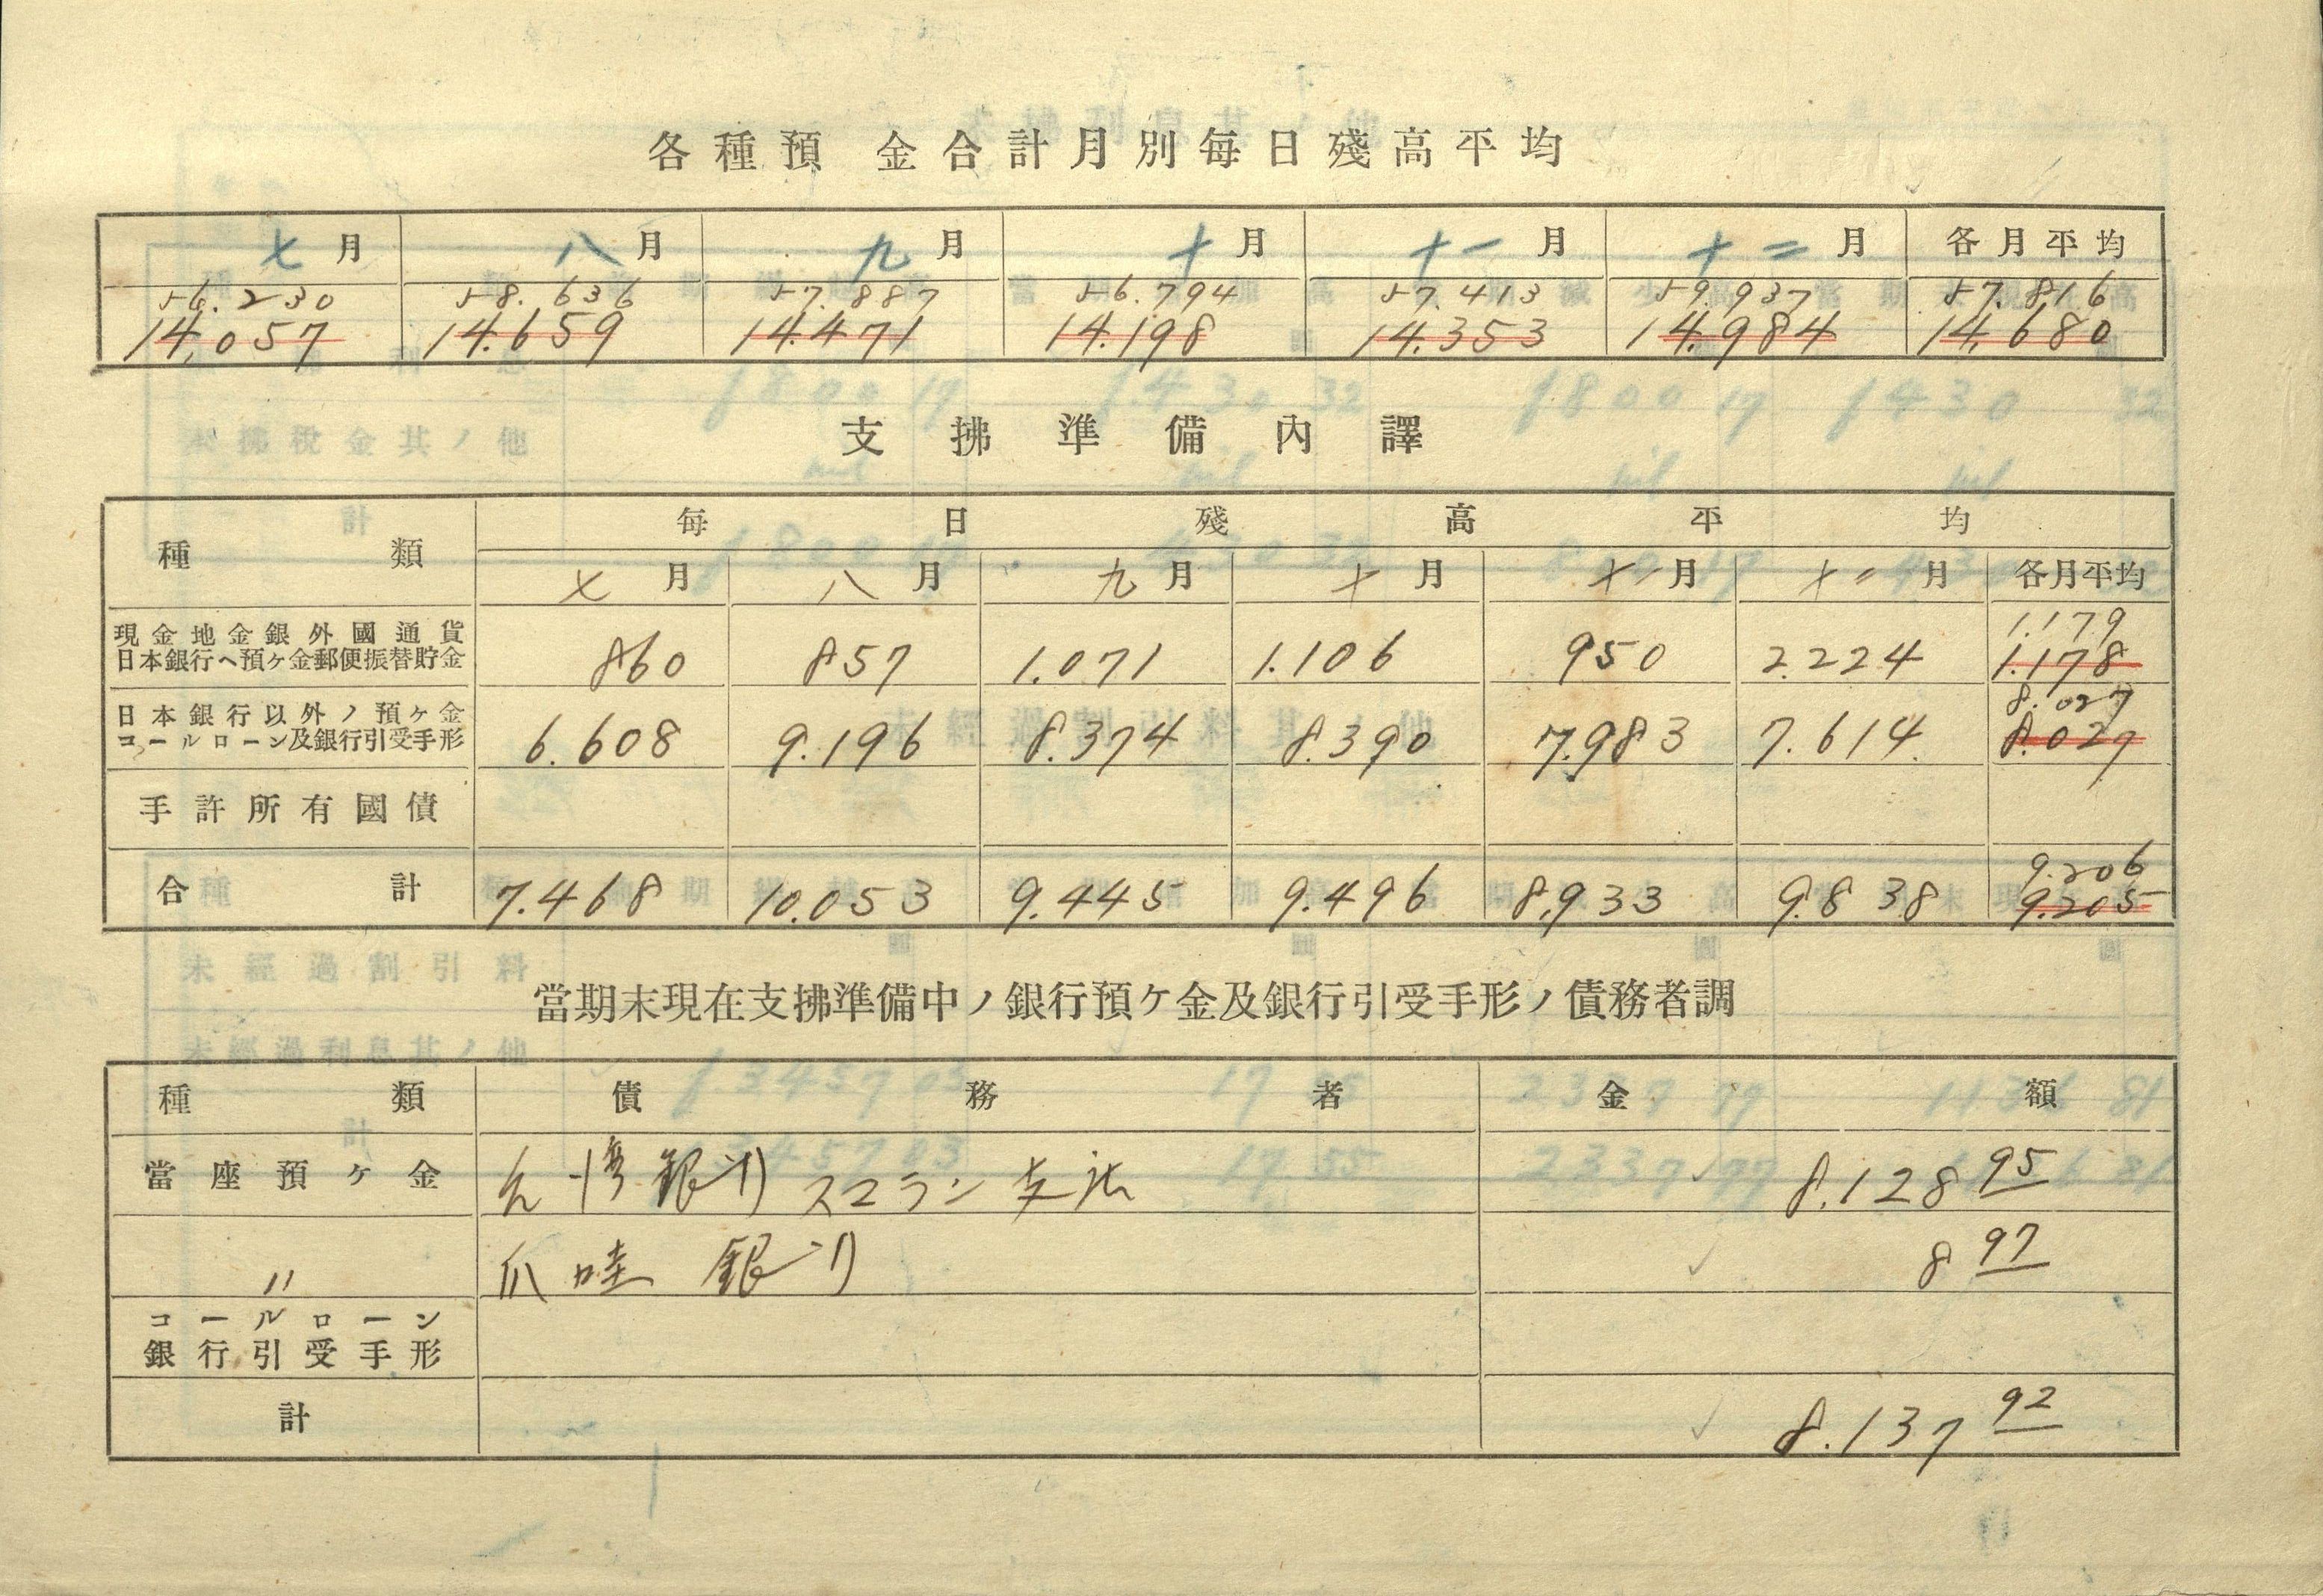 各種預金合計月別每日殘高平均
七月 八月 九月 十月 十一月 十二月 各月平均
56.230 58.636 57.887 56.794 57.413 59.937 57.816
14,057 14.659 14.471 14.198 14.353 14.984 14.680
支拂準備內譯
種類 每日殘高平均
七月 八月 九月 十月 十一月 十二月 各月平均
1.179
現金地金銀外國通貨
日本銀行ヘ預ケ金郵便振替貯金 860 857 1.071 1.106 950 2.224 1.178
8.027
日本銀行以外ノ預ケ金
コールローン及銀行引受手形 6.608 9.196 8.374 8.390 7.983 7.614. 8.027
手許所有國債
9.206
合計 7.468 10.053 9.445 9.496 8.933 9.838 9.205
當期末現在支拂準備中ノ銀行預ケ金及銀行引受手形ノ債務者調
種類 債務者 金額
當座預ケ金 台湾銀行スマラン支店 8.128 95
〃 爪哇銀行 8 97
コールローン
銀行引受手形
計 8.137 92